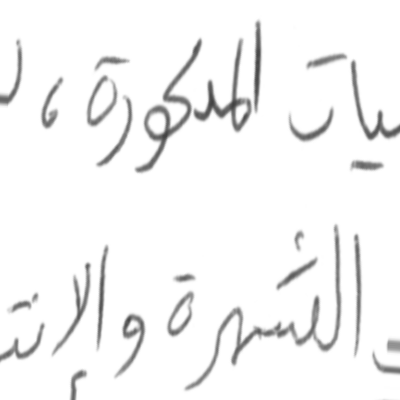 يات المدكورة ،
الشهرة والإنتـ